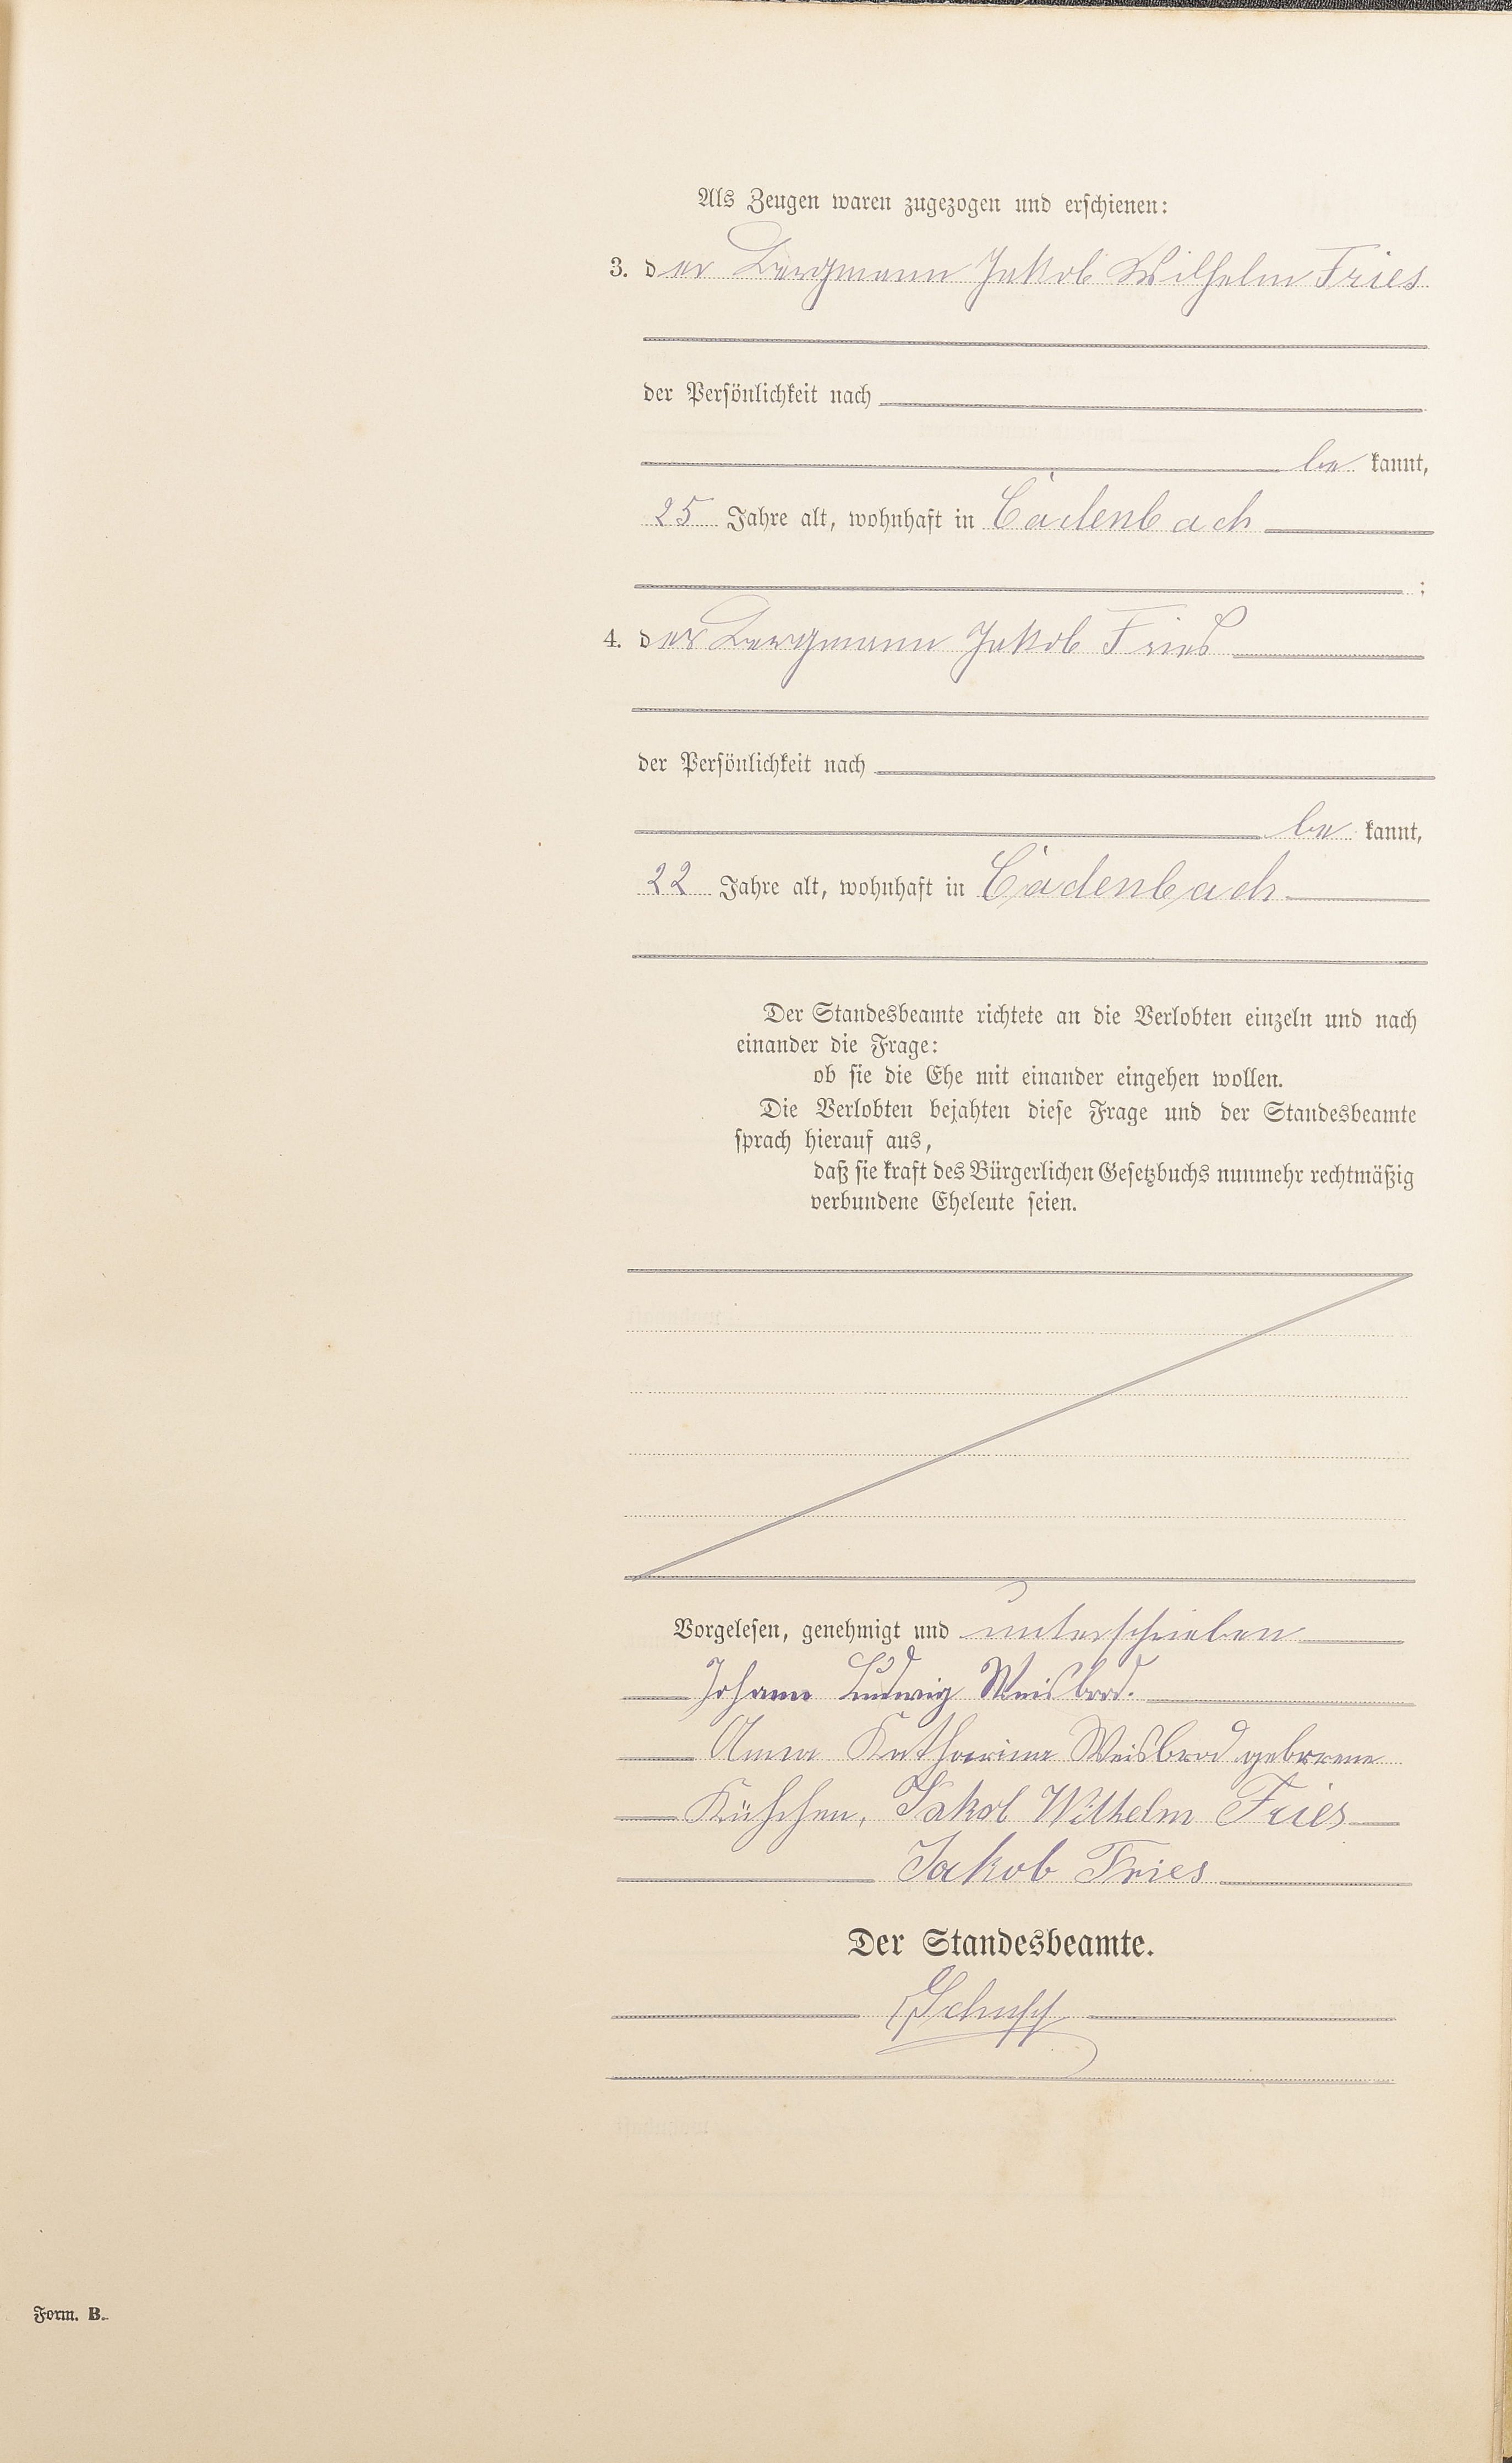 Als Zeugen waren zugezogen und erschienen:
3. der Bergmann Jakob Wilhelm Fries
der Persönlichkeit nach
be kannt,
25 Jahre alt, wohnhaft in Cadenbach
;
4. der Bergmann Jakob Fries
der Persönlichkeit nach
be kannt,
22 Jahre alt, wohnhaft in Cadenbach
Der Standesbeamte richtete an die Verlobten einzeln und nach
einander die Frage:
ob sie die Ehe mit einander eingehen wollen.
Die Verlobten bejahten diese Frage und der Standesbeamte
sprach hierauf aus,
daß sie kraft des Bürgerlichen Gesetzbuchs nunmehr rechtmäßig
verbundene Eheleute seien.
Vorgelesen, genehmigt und unterschrieben
Johann Ludwig Weisbrod.
Anna Katharina Weisbrod geborene
Kühchen, Jakob Wilhelm Fries
Jakob Fries
Der Standesbeamte.
Schupp
Form. B.